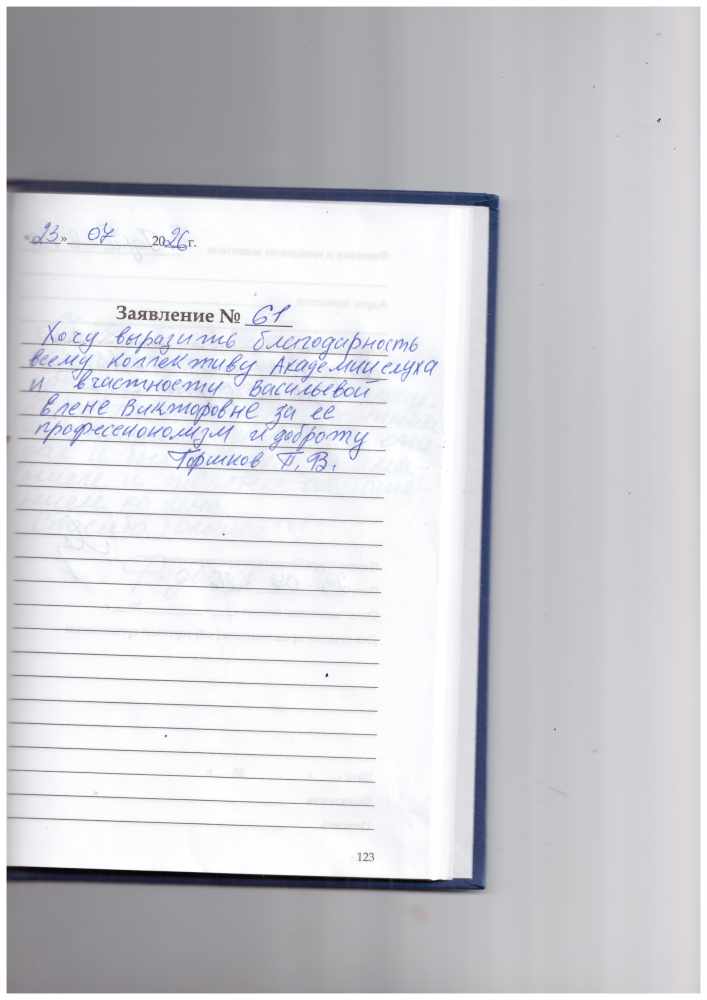 «23» 07 2026 г.
Заявление № 61
Хочу выразить благодарность
всему коллективу Академии слуха
и вчастности Васильевой
Елене Викторовне за её
профессионолизм и доброту
Горшков П. В.
123